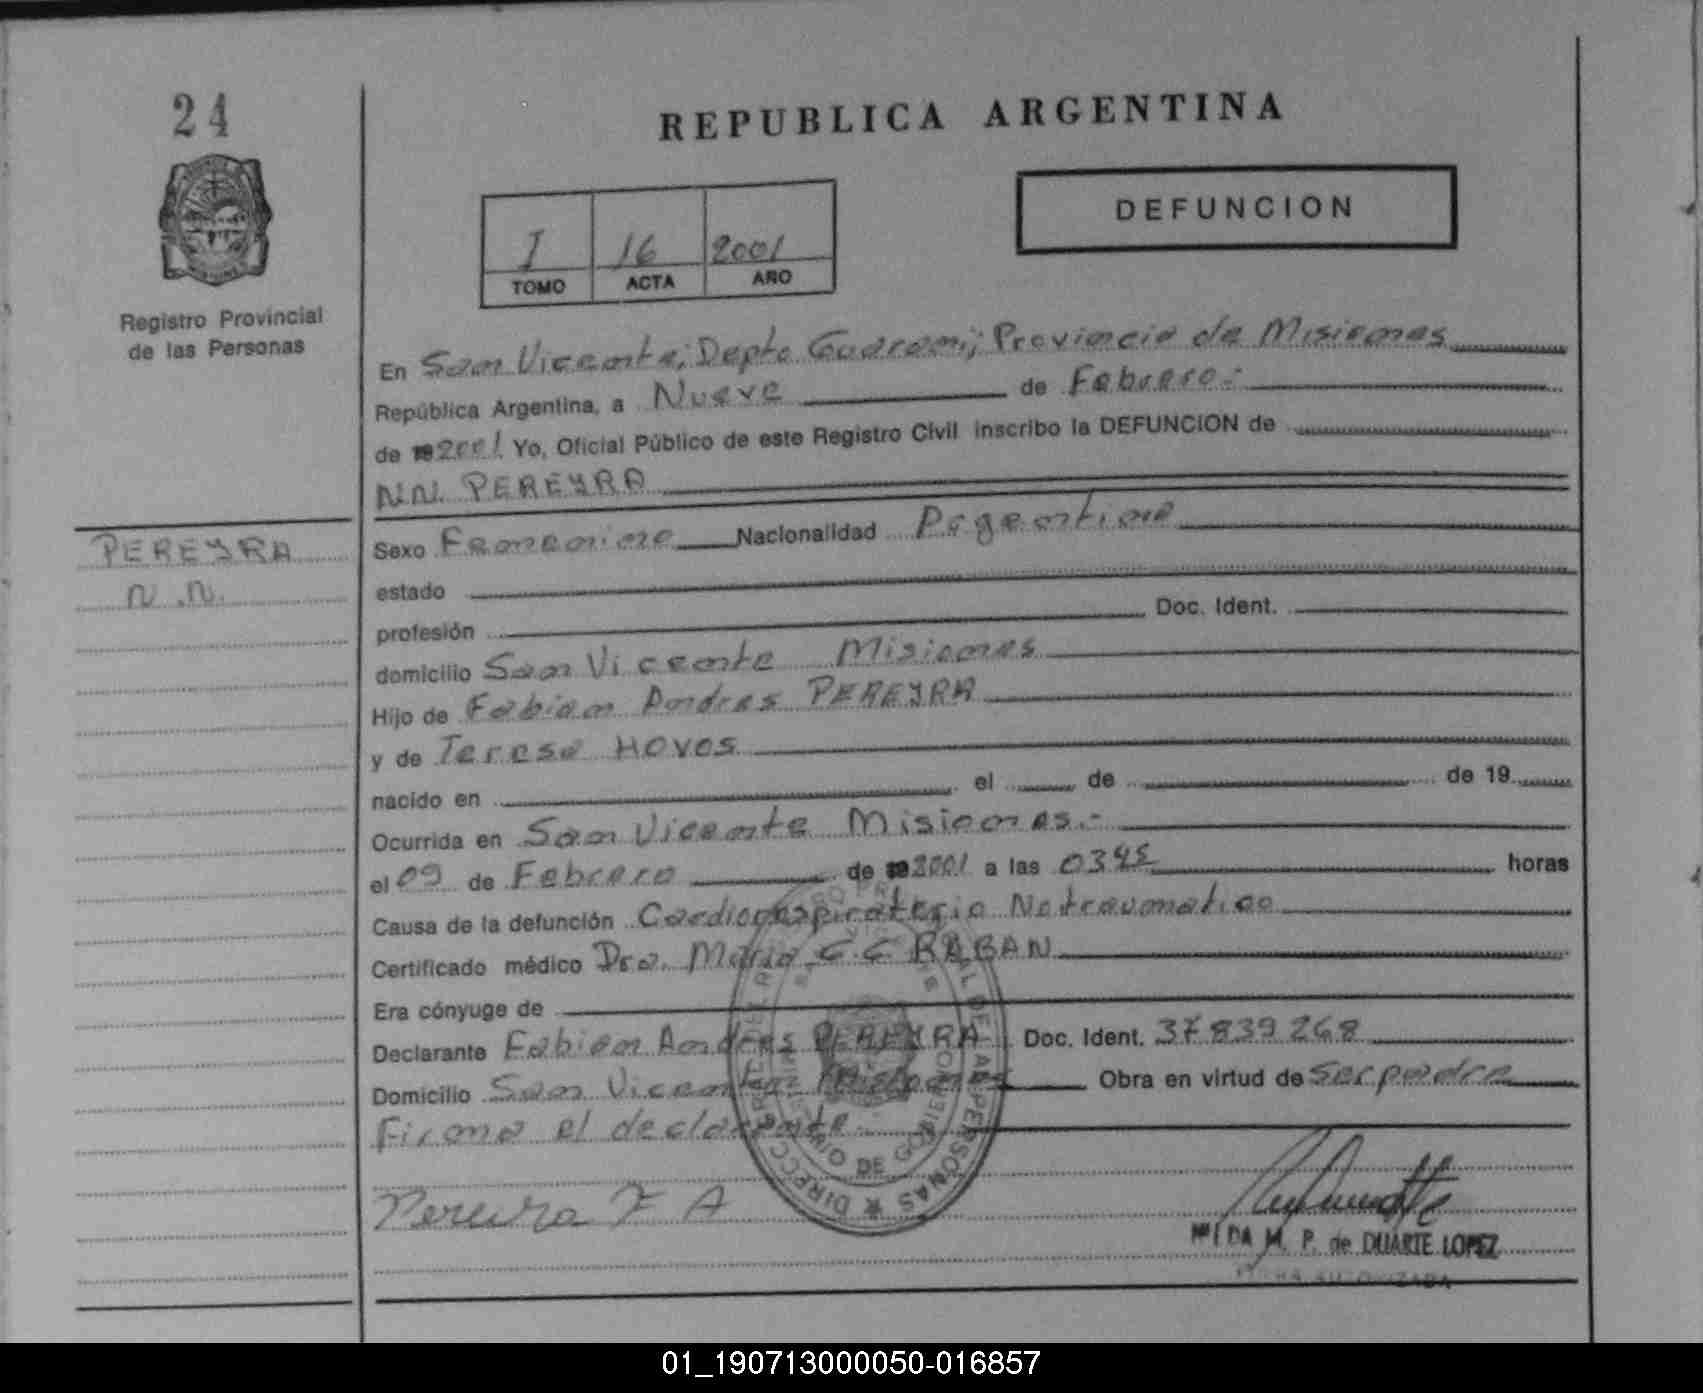 24
REPUBLICA ARGENTINA
DEFUNCION
I 16 2001
TOMO ACTA AÑO
Registro Provincial
de las Personas
En San Vicente; Depto Guarani; Provincia de Misiones
República Argentina, a Nueve de Febrero.-
de 19 2001 Yo, Oficial Público de este Registro Civil inscribo la DEFUNCION de
N.N. PEREYRA
PEREYRA
N.N.
Sexo Femenino Nacionalidad Argentina
estado
profesión Doc. Ident.
domicilio San Vicente Misiones
Hijo de Fabian Andres PEREYRA
y de Teresa HOVOS
nacido en el de de 19
Ocurrida en San Vicente Misiones.-
el 09 de Febrero de 19 2001 a las 0345 horas
Causa de la defunción Cardiorespiratorio No traumatico
Certificado médico Dra. Maria C.C RABAN
Era cónyuge de
Declarante Fabian Andres PEREYRA Doc. Ident. 37839268
Domicilio San Vicente Misiones Obra en virtud de Ser padre
Firma el declarante.
Pereira F A
DA M. P. de DUARTE LOPEZ
DE LAS PERSONAS
DE GOBIERNO
01_190713000050-016857